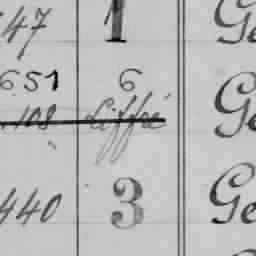 47 1 Ge
651 6 Ge
108 Liffré
440 3 Ge